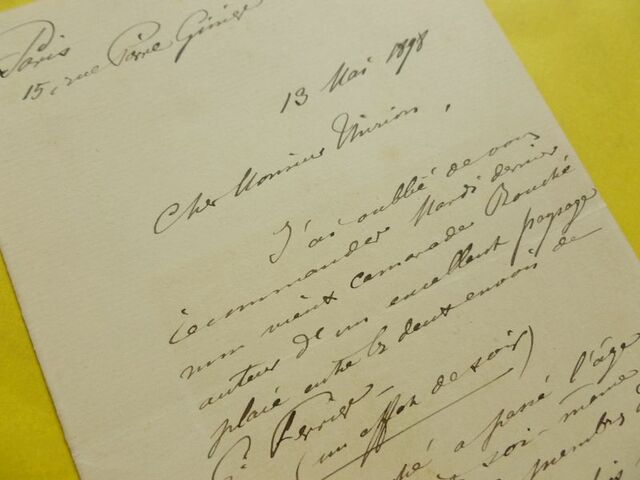 Paris
15, rue Pierre Ginier
13 Mai 1898
Cher Monsieur Thirion,
J'ai oublié de vous
recommander Mardi dernier
mon vieux camarade Bouché
auteur d'un excellent paysage
placé entre les deux envois de
G. Ferrier_
(un effet de soir)
a passé l'âge
soi-même
membres